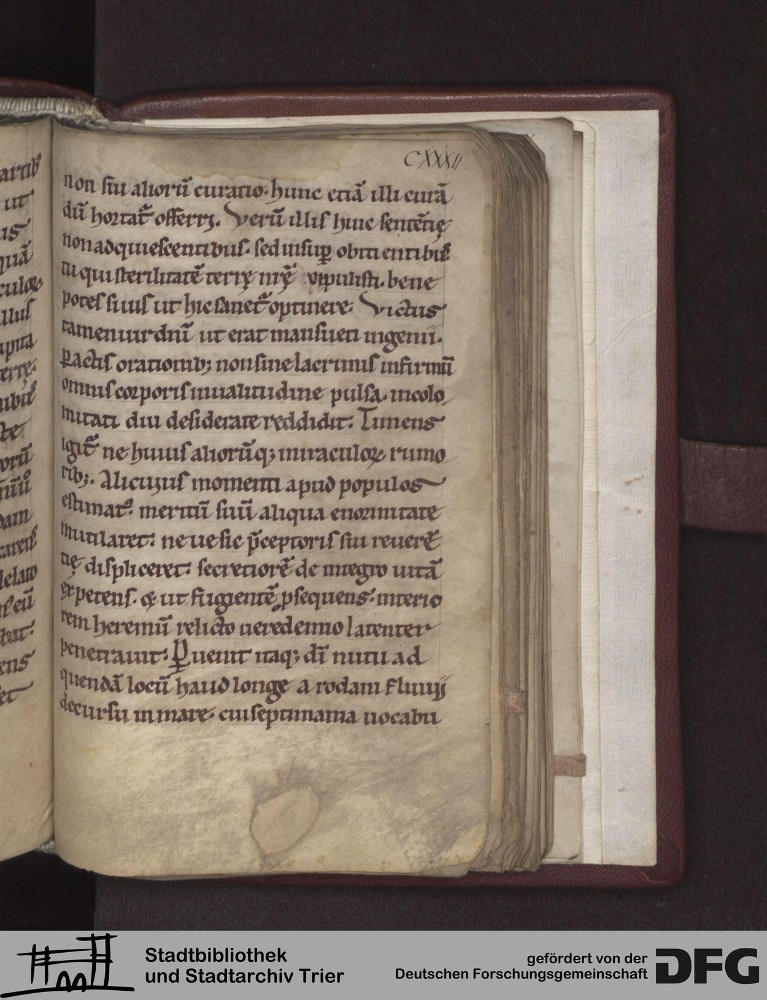 CXXXII
non suū aliorū curatio. hunc etiā illi curā
dū hortat̄ offerrꝫ. Verū illis huic sententię
non adquiescentibus. sed insup̱ obtientibus
tu qui sterilitatē terrę nrę̄ expulisti. bene
potes si uis ut hic sanet̄ optinere. Victus
tamen uir dnī ut erat mansueti ingenii.
ꝑactis orationibꝫ non sine lacrimis infirmū
omnis corporis inualitudine pulsa. incolo
mitati diu desiderate reddidit. Timens
igit̄ ne huius aliorūqꝫ miraculoꝝ rumo
ribꝫ. alicuius momenti apud populos
estimat᷒ meritū suū aliqua enormitate
mutilaret. ne ue sic p̄ceptoris sui reuerē
tię displiceret. secretiorē de integro uitā
expetens. & ut fugientē ꝑsequens. interio
rem heremū relicto ueredemio latenter
penetrauit. ꝑuenit itaqꝫ dī nutu ad
quendā locū haud longe a rodani fluuii
decursu in mare. cui septimania uocabu
artibꝫ
ut
quā
llus
Stadtbibliothek
und Stadtarchiv Trier
gefördert von der
Deutschen Forschungsgemeinschaft
DFG